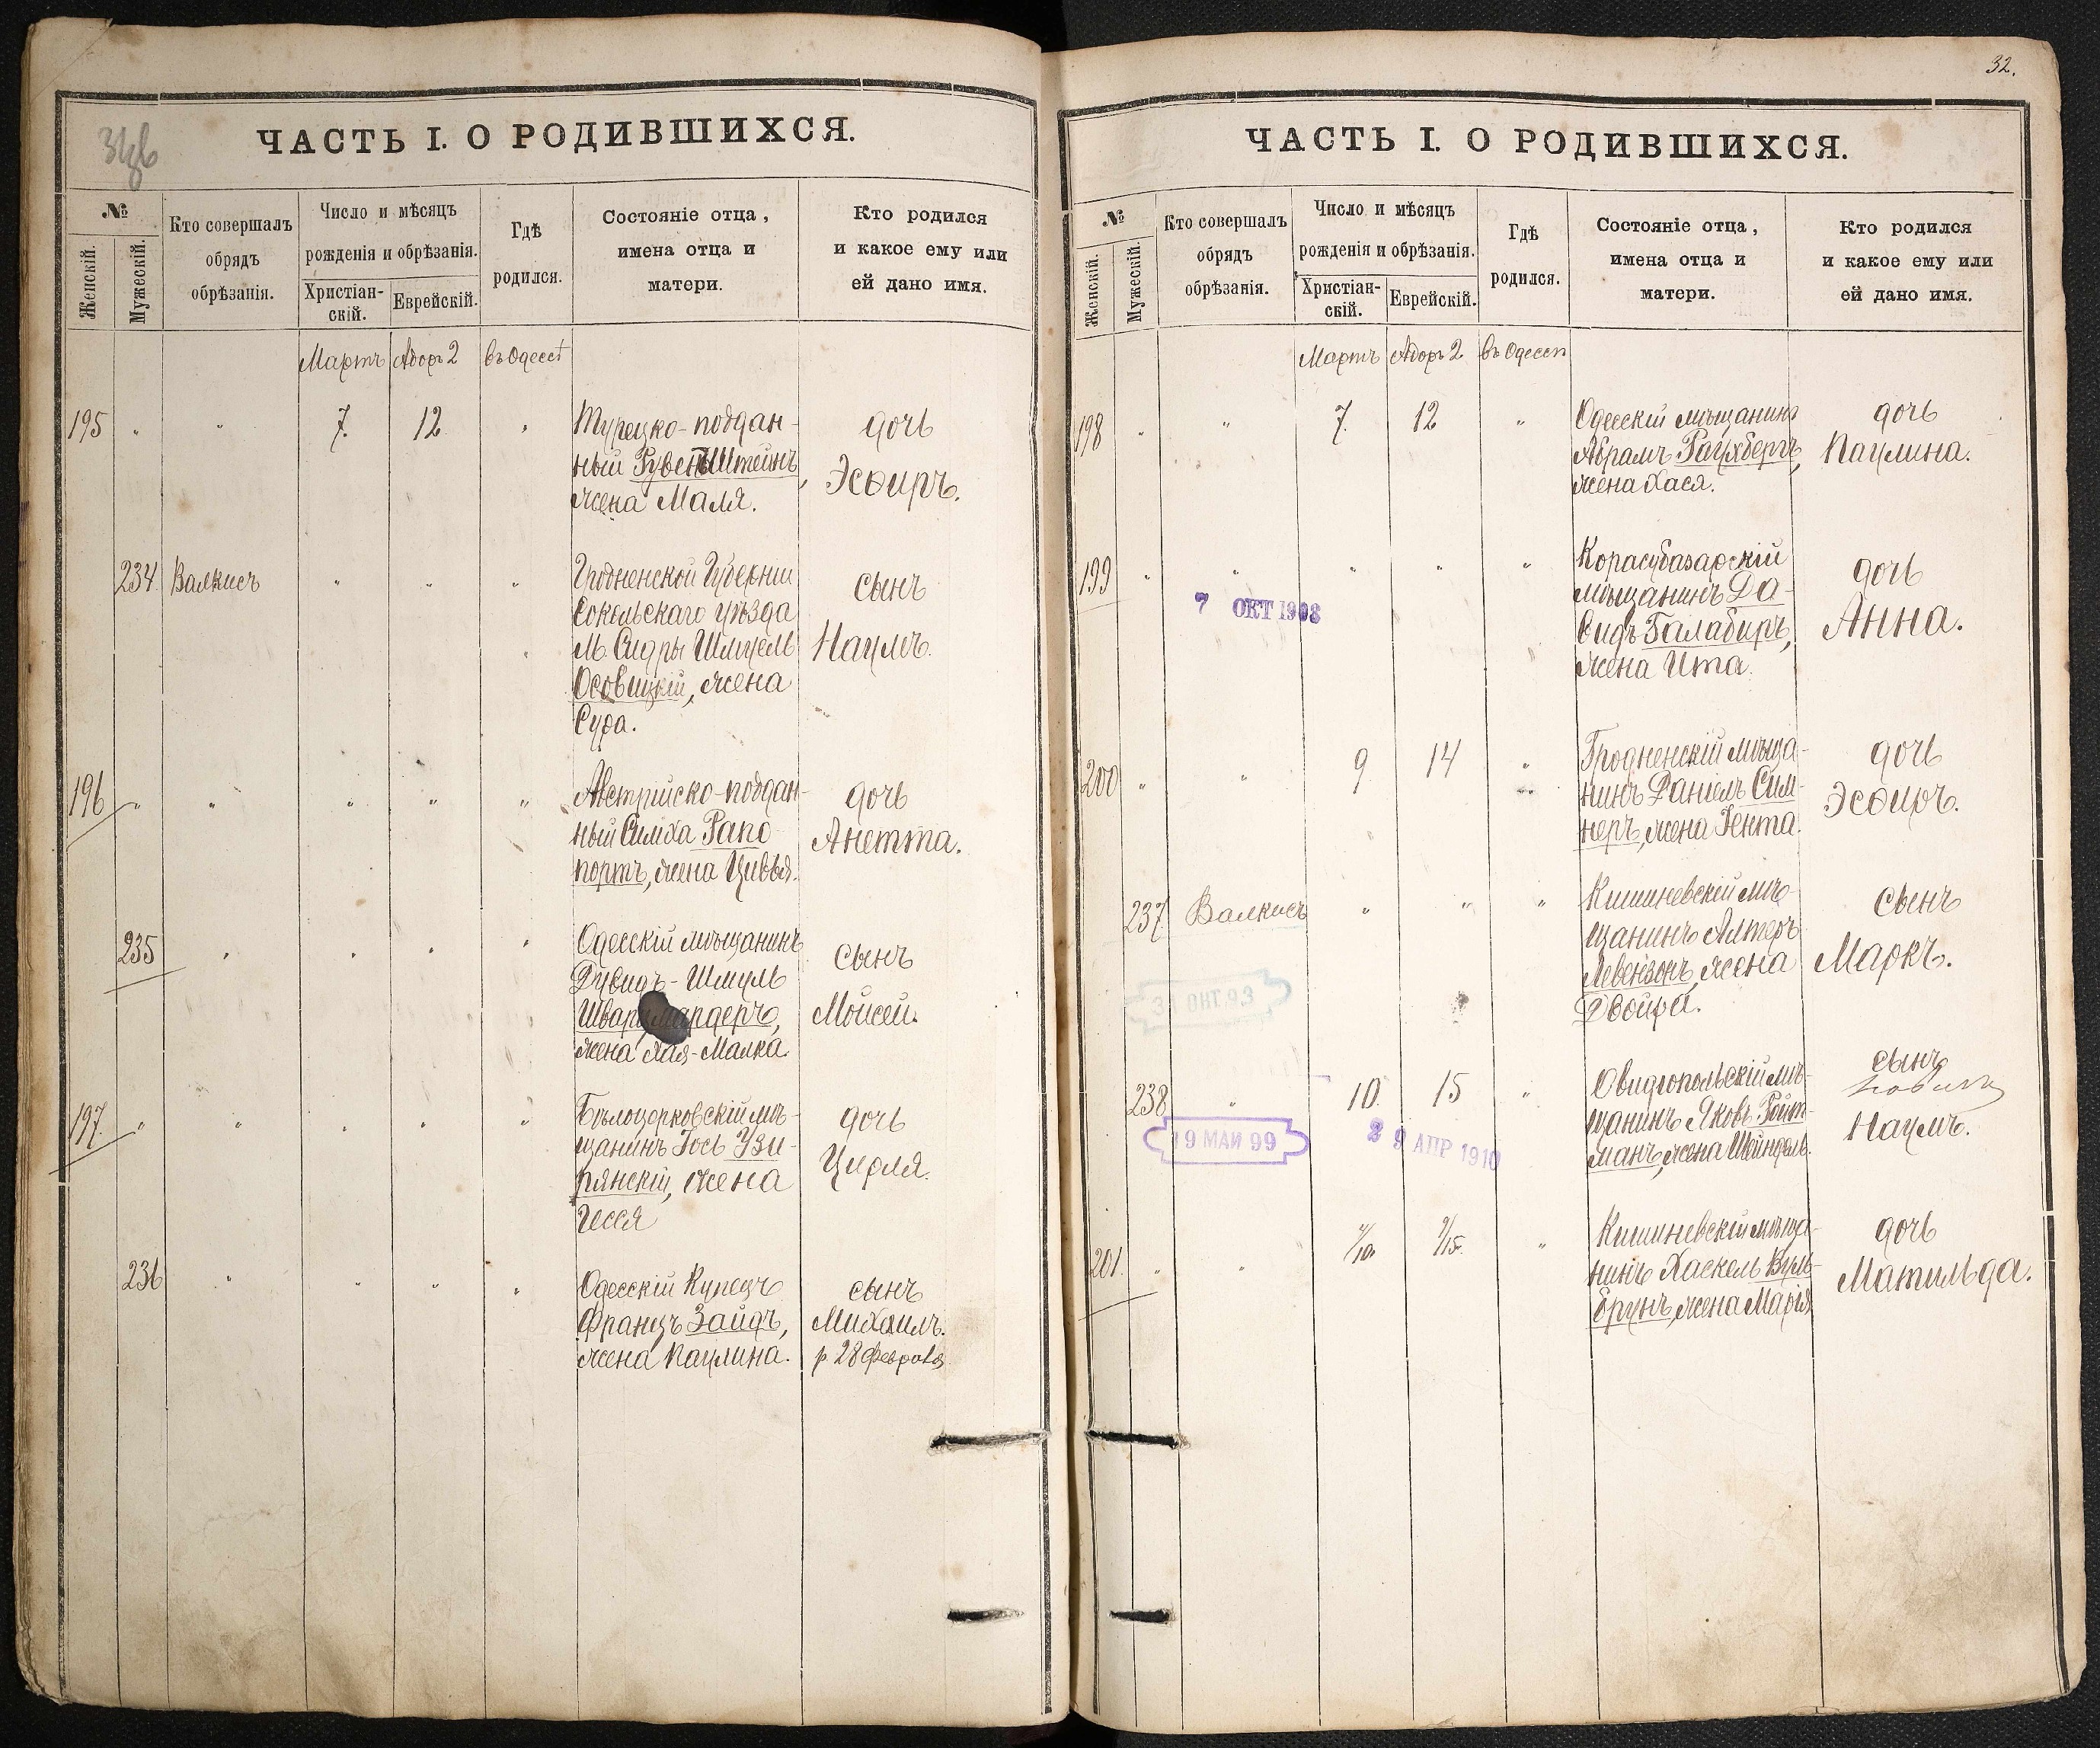 ЧАСТЬ I. О РОДИВШИХСЯ.
№
Женскій.
Мужескій.
Кто совершалъ
обрядъ
обрѣзанія.
Число и мѣсяцъ
рожденія и обрѣзанія.
Христіан-
скій.
Еврейскій.
Гдѣ
родился.
Состояніе отца,
имена отца и
матери.
Кто родился
и какое ему или
ей дано имя.
Мартъ Адоръ 2 въ Одессѣ
195 " " 7. 12 "
Турецко-поддан-
ный Рувенъ Штейнъ,
жена Маля.
дочь
Эсѳиръ.
234 Валкисъ " " "
Гродненской Губерніи
Сокольскаго уѣзда
М. Сидры Шмуель
Осовицкій, жена
Сура.
сынъ
Наумъ.
196 " " " " "
Австрійско-поддан-
ный Симха Рапо-
портъ, жена Цивья.
дочь
Анетта.
235 " " " "
Одесскій мѣщанинъ
Дувидъ-Шмуль
жена Хая-Малка.
сынъ
Мойсей.
197. " " " " "
Бѣлоцерковскій мѣ-
щанинъ Іось Узи-
рянскій, жена
Гесся
дочь
Цирля.
236 " " " "
Одесскій Купецъ
Францъ Зайдъ,
жена Паулина.
сынъ
Михаилъ.
р. 28 Февраля
32.
ЧАСТЬ I. О РОДИВШИХСЯ.
№
Женскій.
Мужескій.
Кто совершалъ
обрядъ
обрѣзанія.
Число и мѣсяцъ
рожденія и обрѣзанія.
Христіан-
скій.
Еврейскій.
Гдѣ
родился.
Состояніе отца,
имена отца и
матери.
Кто родился
и какое ему или
ей дано имя.
Мартъ Адоръ 2 въ Одессѣ
198 " " 7. 12 "
Одесскій мѣщанинъ
Абрамъ Раухбергъ,
жена Хася.
дочь
Паулина.
199 " " " " "
7 ОКТ 1908
Корасубазарскій
мѣщанинъ Да-
видъ Балабиръ,
жена Ита.
дочь
Анна.
200 " " 9 14 "
Гродненскій мѣща-
нинъ Даніелъ Сим-
неръ, жена Гента.
дочь
Эсѳиръ.
237 Валкисъ " " "
31 ОКТ. 93
Кишиневскій мѣ-
щанинъ Алтеръ
Левензонъ, жена
Двойра.
сынъ
Маркъ.
238 " 10. 15 "
19 МАЙ 99
29 АПР 1910
Овидіопольскій мѣ-
щанинъ Яковъ Гойт-
манъ, жена Шейндель.
сынъ
Наумъ.
201. " " 4/10. 9/15. "
Кишиневскій мѣща-
нинъ Хаскель Вуль-
брунъ, жена Марія
дочь
Матильда.